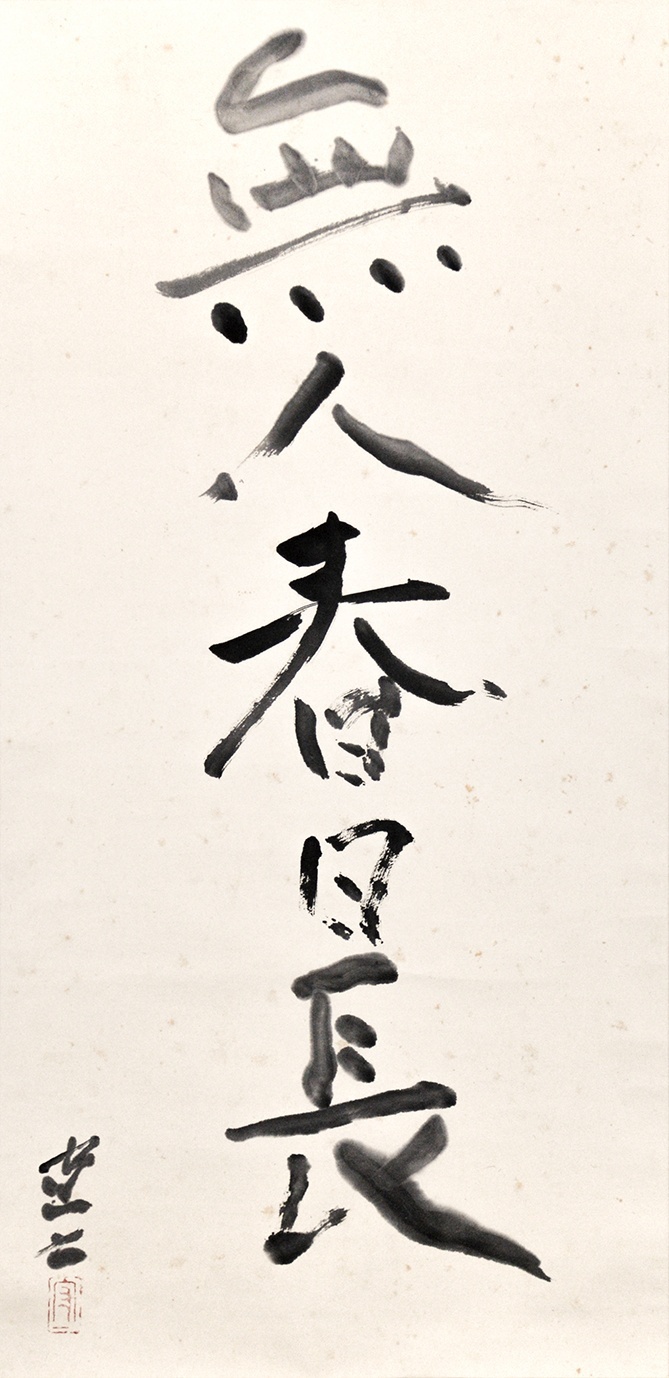 無人春日長